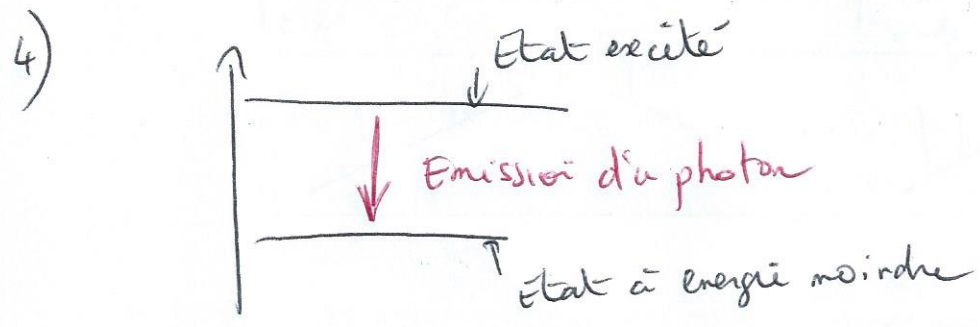 4)
Etat excité
Emission d'u photon
Etat à energie moindre